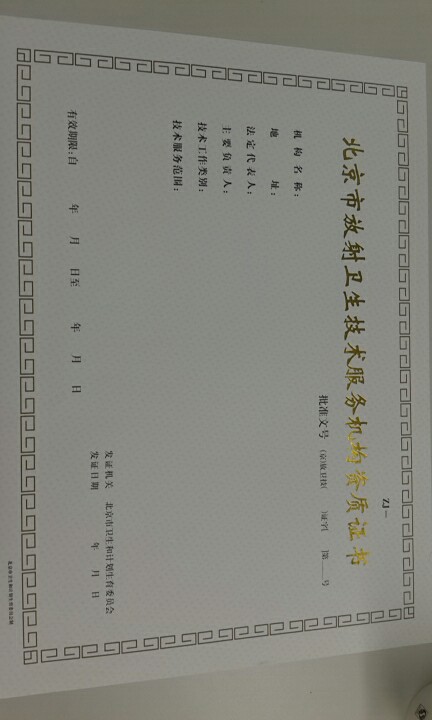 ZJ—
北京市放射卫生技术服务机构资质证书
批准文号 (京)放卫技( )证字[ ]第 号
机构名称：
地址：
法定代表人：
主要负责人：
技术工作类别：
技术服务范围：
发证机关 北京市卫生和计划生育委员会
发证日期 年 月 日
有效期限:自 年 月 日至 年 月 日